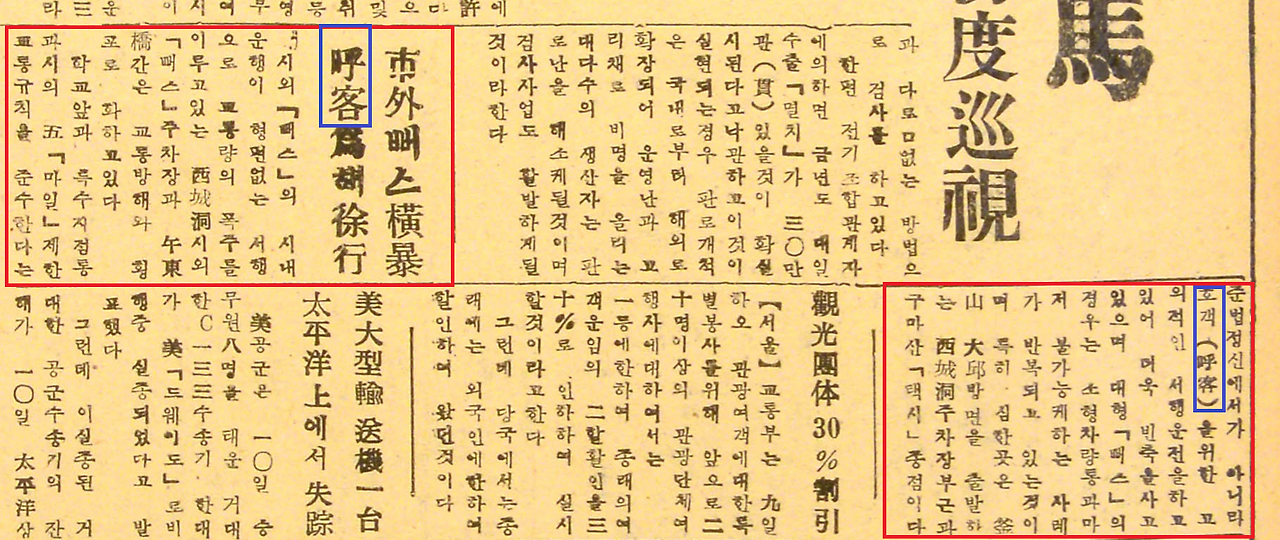 馬
度巡視
과 다름없는 방법으
로 검사를 하고있다
한편 전기 조합관계자
에의하면 금년도 대일
수출「멸치」가 三○만
판(貫)있을것이 확실
시된다고낙관하고이것이
실현되는경우 판로개척
은 국내로부터 해외로
확장되어 운영난과 고
리채로 비명을 올리는
대다수의 생산자는 판
로난을 해소케될것이며
검사사업도 활발하게될
것이라한다
市外뻐스橫暴
呼客爲해徐行
시외「뻐스」의 시내
운행이 형편없는 서행
으로 교통량의 폭주를
이루고있는 西城洞시외
「뻐스」주차장과 午東
橋간은 교통방해와 횡
포로 화하고있다
학교앞과 특수지점통
과시의 五「마일」제한
교통규칙을 준수한다는
준법정신에서가 아니라
호객(呼客)을위한 고
의적인 서행운전을하고
있어 더욱 빈축을사고
있으며 대형「뻐스」의
경우는 소형차량통과마
저 불가능케하는 사례
가 반복되고 있는것이
며 특히 심한곳은 釜
山 大邱방면을 출발하
는 西城洞주차장부근과
구마산「택시」종점이다
觀光團体30%割引
【서울】교통부는 九일
하오 관광여객에대한특
별봉사를위해 앞으로二
十명이상의 관광단체여
행사에대하여서는
一등에한하여 종래의여
객운임의 二할할인을三
十%로 인하하여 실시
할것이라고한다
그런데 당국에서는종
래에는 외국인에한하여
할인하여 왔던것이다
美大型輸送機一台
太平洋上에서 失踪
美공군은 一○일 승
무원八명을 태운 거대
한C一三三수송기 한대
가 美「드웨이도」로비
행중 실종되었다고 발
표했다
그런데 이실종된 거
대한 공군수송기의 잔
해가 一○일 太平洋상